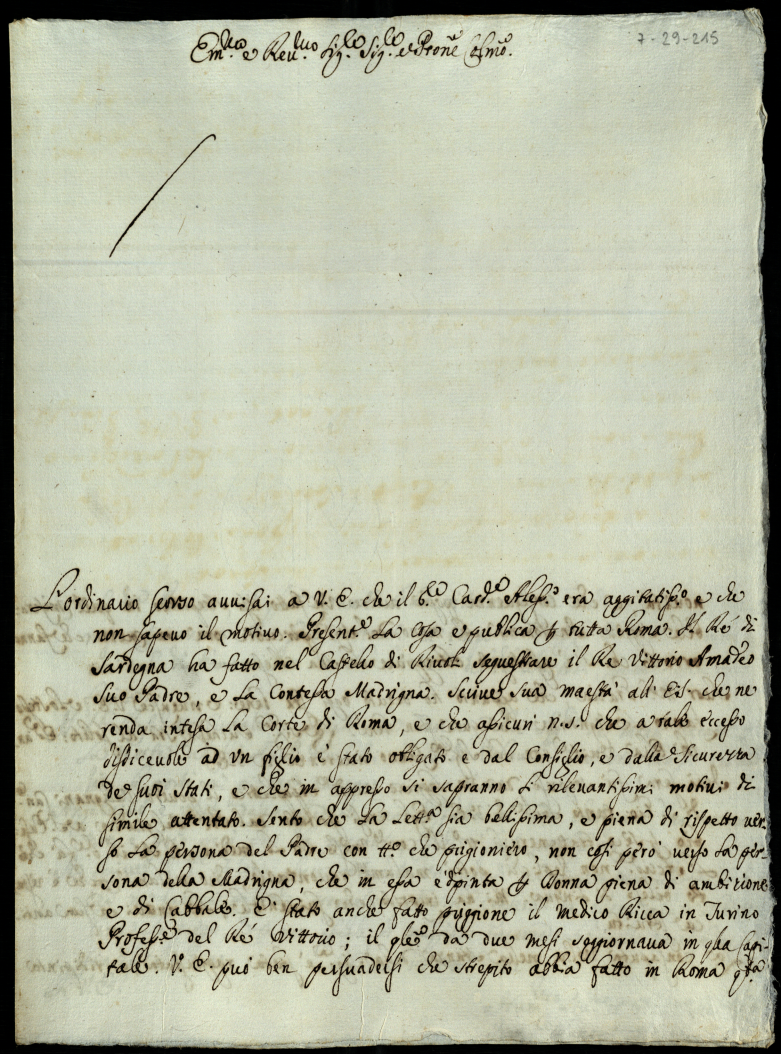 7-29-215
Em.mo e Rev.mo Sig.re Sig.re e Prone Colmo.
L'ordinario scorso avvisai a V. E. che il S.r Card.e Aless.o era aggitatiss.o e che
non sapevo il motivo. Present.e La Cosa e publica p tutta Roma. Il Ré di
Sardegna ha fatto nel Castello di Rivoli sequestrare il Re Vittorio Amadeo
suo Padre, e La Contessa Madrigna. Scrive sua maestà all' che ne
renda intesa La Corte di Roma, e che assicuri n.s. che a tale eccesso
disdicevole ad un figlio è stato obligato e dal Consiglio, e dalla Sicurezza
de suoi Stati, e che in appresso si sapranno li rilevantissimi motivi di
simile attentato. Sento che La Lett.a sia bellissima, e piena di rispetto ver-
so La persona del Padre con tt.o che prigioniero, non così però verso La per-
sona della Madrigna, che in essa è dipinta p Donna piena di ambizione
e di Cabbale. E' stato anche fatto priggione il medico Ricca in Turino
Profess.e del Ré Vittorio; il qle da due mesi soggiornava in qlla Capi-
tale. V. E. può ben persuadersi che strepito abbia fatto in Roma q.ta